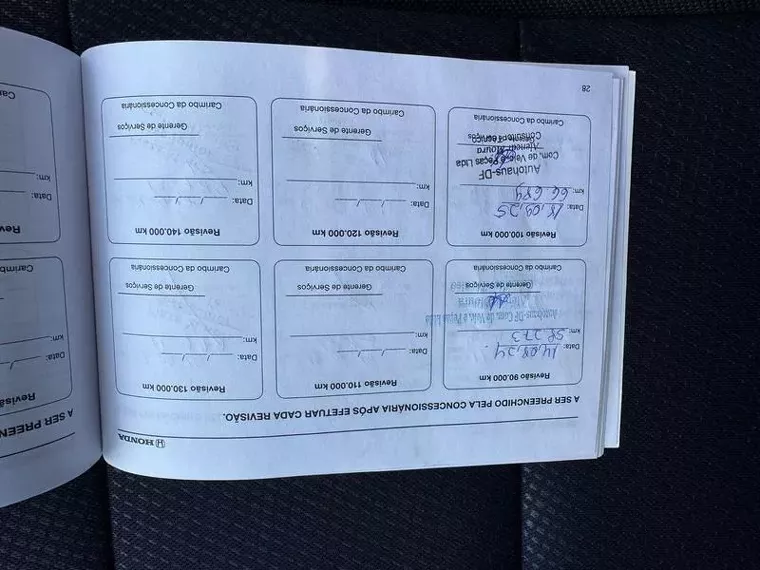 HONDA
A SER PREENCHIDO PELA CONCESSIONÁRIA APÓS EFETUAR CADA REVISÃO.
Revisão 90.000 km
Data: 14,08,24
km: 58 273
Autohaus-DF Com. de Veic. e Peças Ltda
Gerente de Serviços
Carimbo da Concessionária
Revisão 110.000 km
Data:
km:
Gerente de Serviços
Carimbo da Concessionária
Revisão 130.000 km
Data:
km:
Gerente de Serviços
Carimbo da Concessionária
Revisão 100.000 km
Data: 18,09,25
km: 66 689
Autohaus-DF
Com. de Veic. e Peças Ltda
Moura
Consultor Técnico
Gerente de Serviços
Carimbo da Concessionária
Revisão 120.000 km
Data:
km:
Gerente de Serviços
Carimbo da Concessionária
Revisão 140.000 km
Data:
km:
Gerente de Serviços
Carimbo da Concessionária
28
A SER PREEN